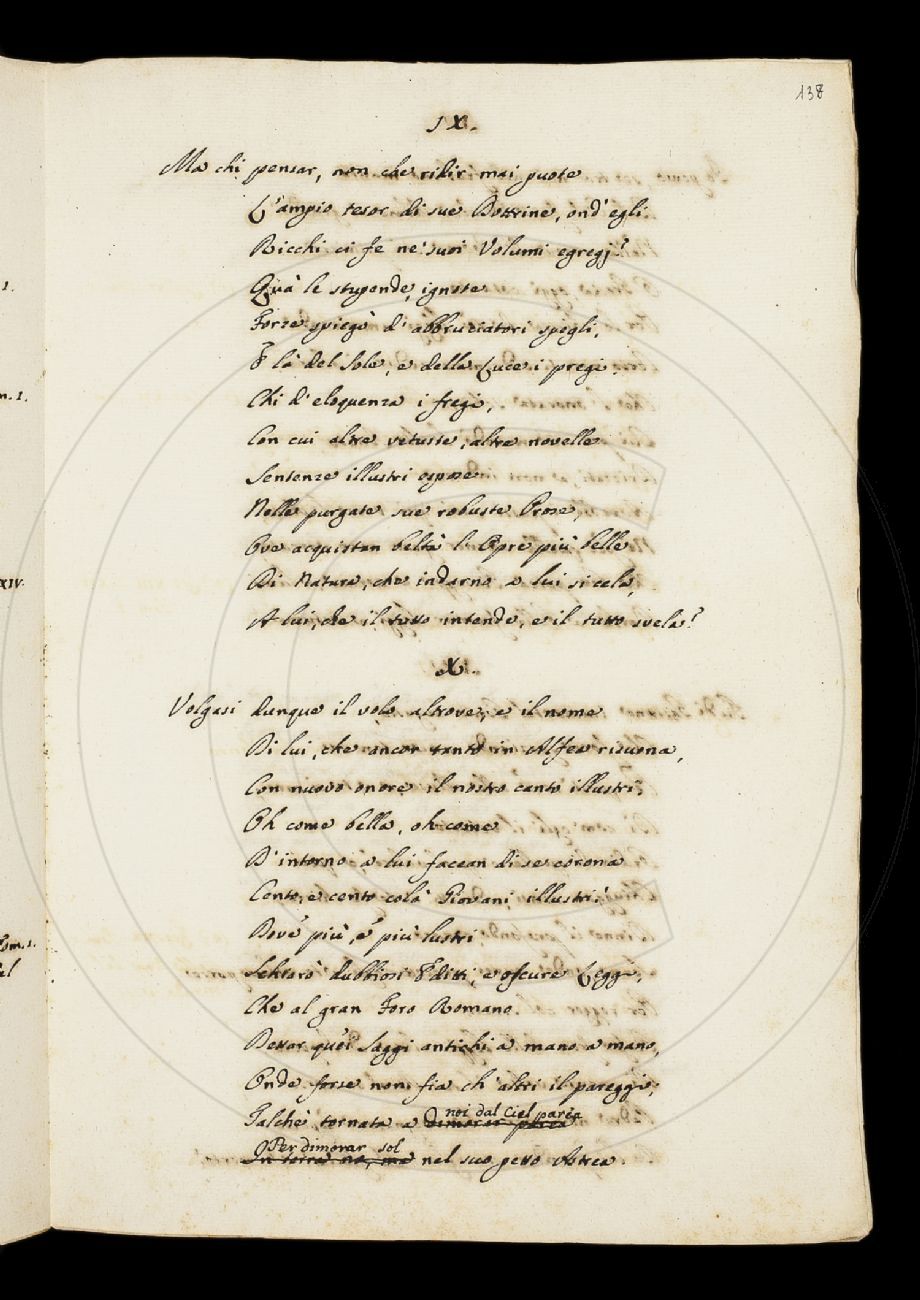 138
IX.
Ma chi pensar, non che ridir mai puote
L'ampio tesor di sue Dottrine, ond' egli
Ricchi ci fe ne' suoi Volumi egregj?
Quà le stupende, ignote
Forze spiegò d' abbruciatori spegli,
E là del Sole, e della Luce i pregi,
Chi d' eloquenza i fregi,
Con cui altre vetuste, altre novelle
Sentenze illustri espose
Nelle purgate sue robuste Prose,
Ove acquistan beltà l' Opre più belle
Di Natura, che indarno a lui si cela,
A lui, che il tutto intende, e il tutto svela?
X.
Volgasi dunque il volo altrove, e il nome
Di lui, che ancor tanto in Alfea risuona,
Con nuovo onore il nostro canto illustri.
Oh come bella, oh come
D' intorno a lui facean di se corona
Cento, e cento colà Giovani illustri!
Dov' è più, e più lustri
Schiarò dubbiosi Editti, e oscure Leggi,
Che al gran Foro Romano
Dettar quei Saggi antichi a mano a mano,
Onde forse non fia ch' altri il pareggi;
Talchè tornata a noi dal Ciel parea
dimorar parea
Per dimorar sol
In terra no, ma nel suo petto Astrea.
1.
m. 1.
XIV.
Tom. 1.
del